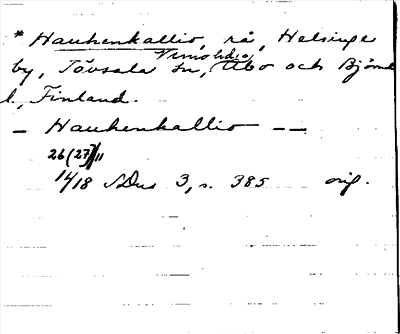 * Hauhenkallio, rå, Helsinge
Vemo hd,
by, Tövsala sn, Åbo och Björneb
l., Finland.
— Hauhenkallio — —
26(27)/11
14/18 SDns 3, s. 385 orig.